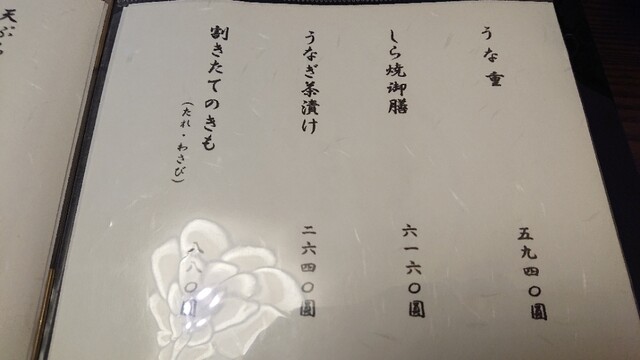 うな重
五九四〇圓
しら焼御膳
六一六〇圓
うなぎ茶漬け
二六四〇圓
割きたてのきも
(たれ・わさび)
八八〇圓
天ぷら